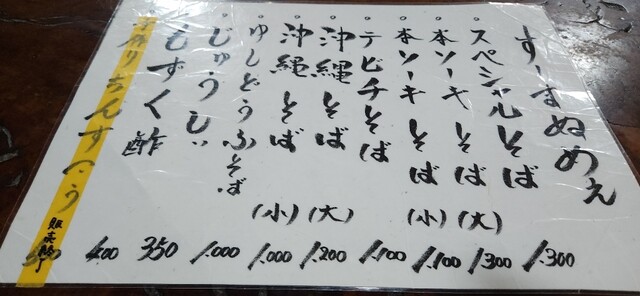 すーまぬめぇ
。スペシャルそば 1.300
。本ソーキそば (大) 1.300
。本ソーキそば (小) 1.100
。テビチそば 1.100
。沖縄そば (大) 1.200
。沖縄そば (小) 1.000
。ゆしどうふそば 1.000
。じゅうしぃ 350
もずく酢 400
手作りちんすこう 販売終了